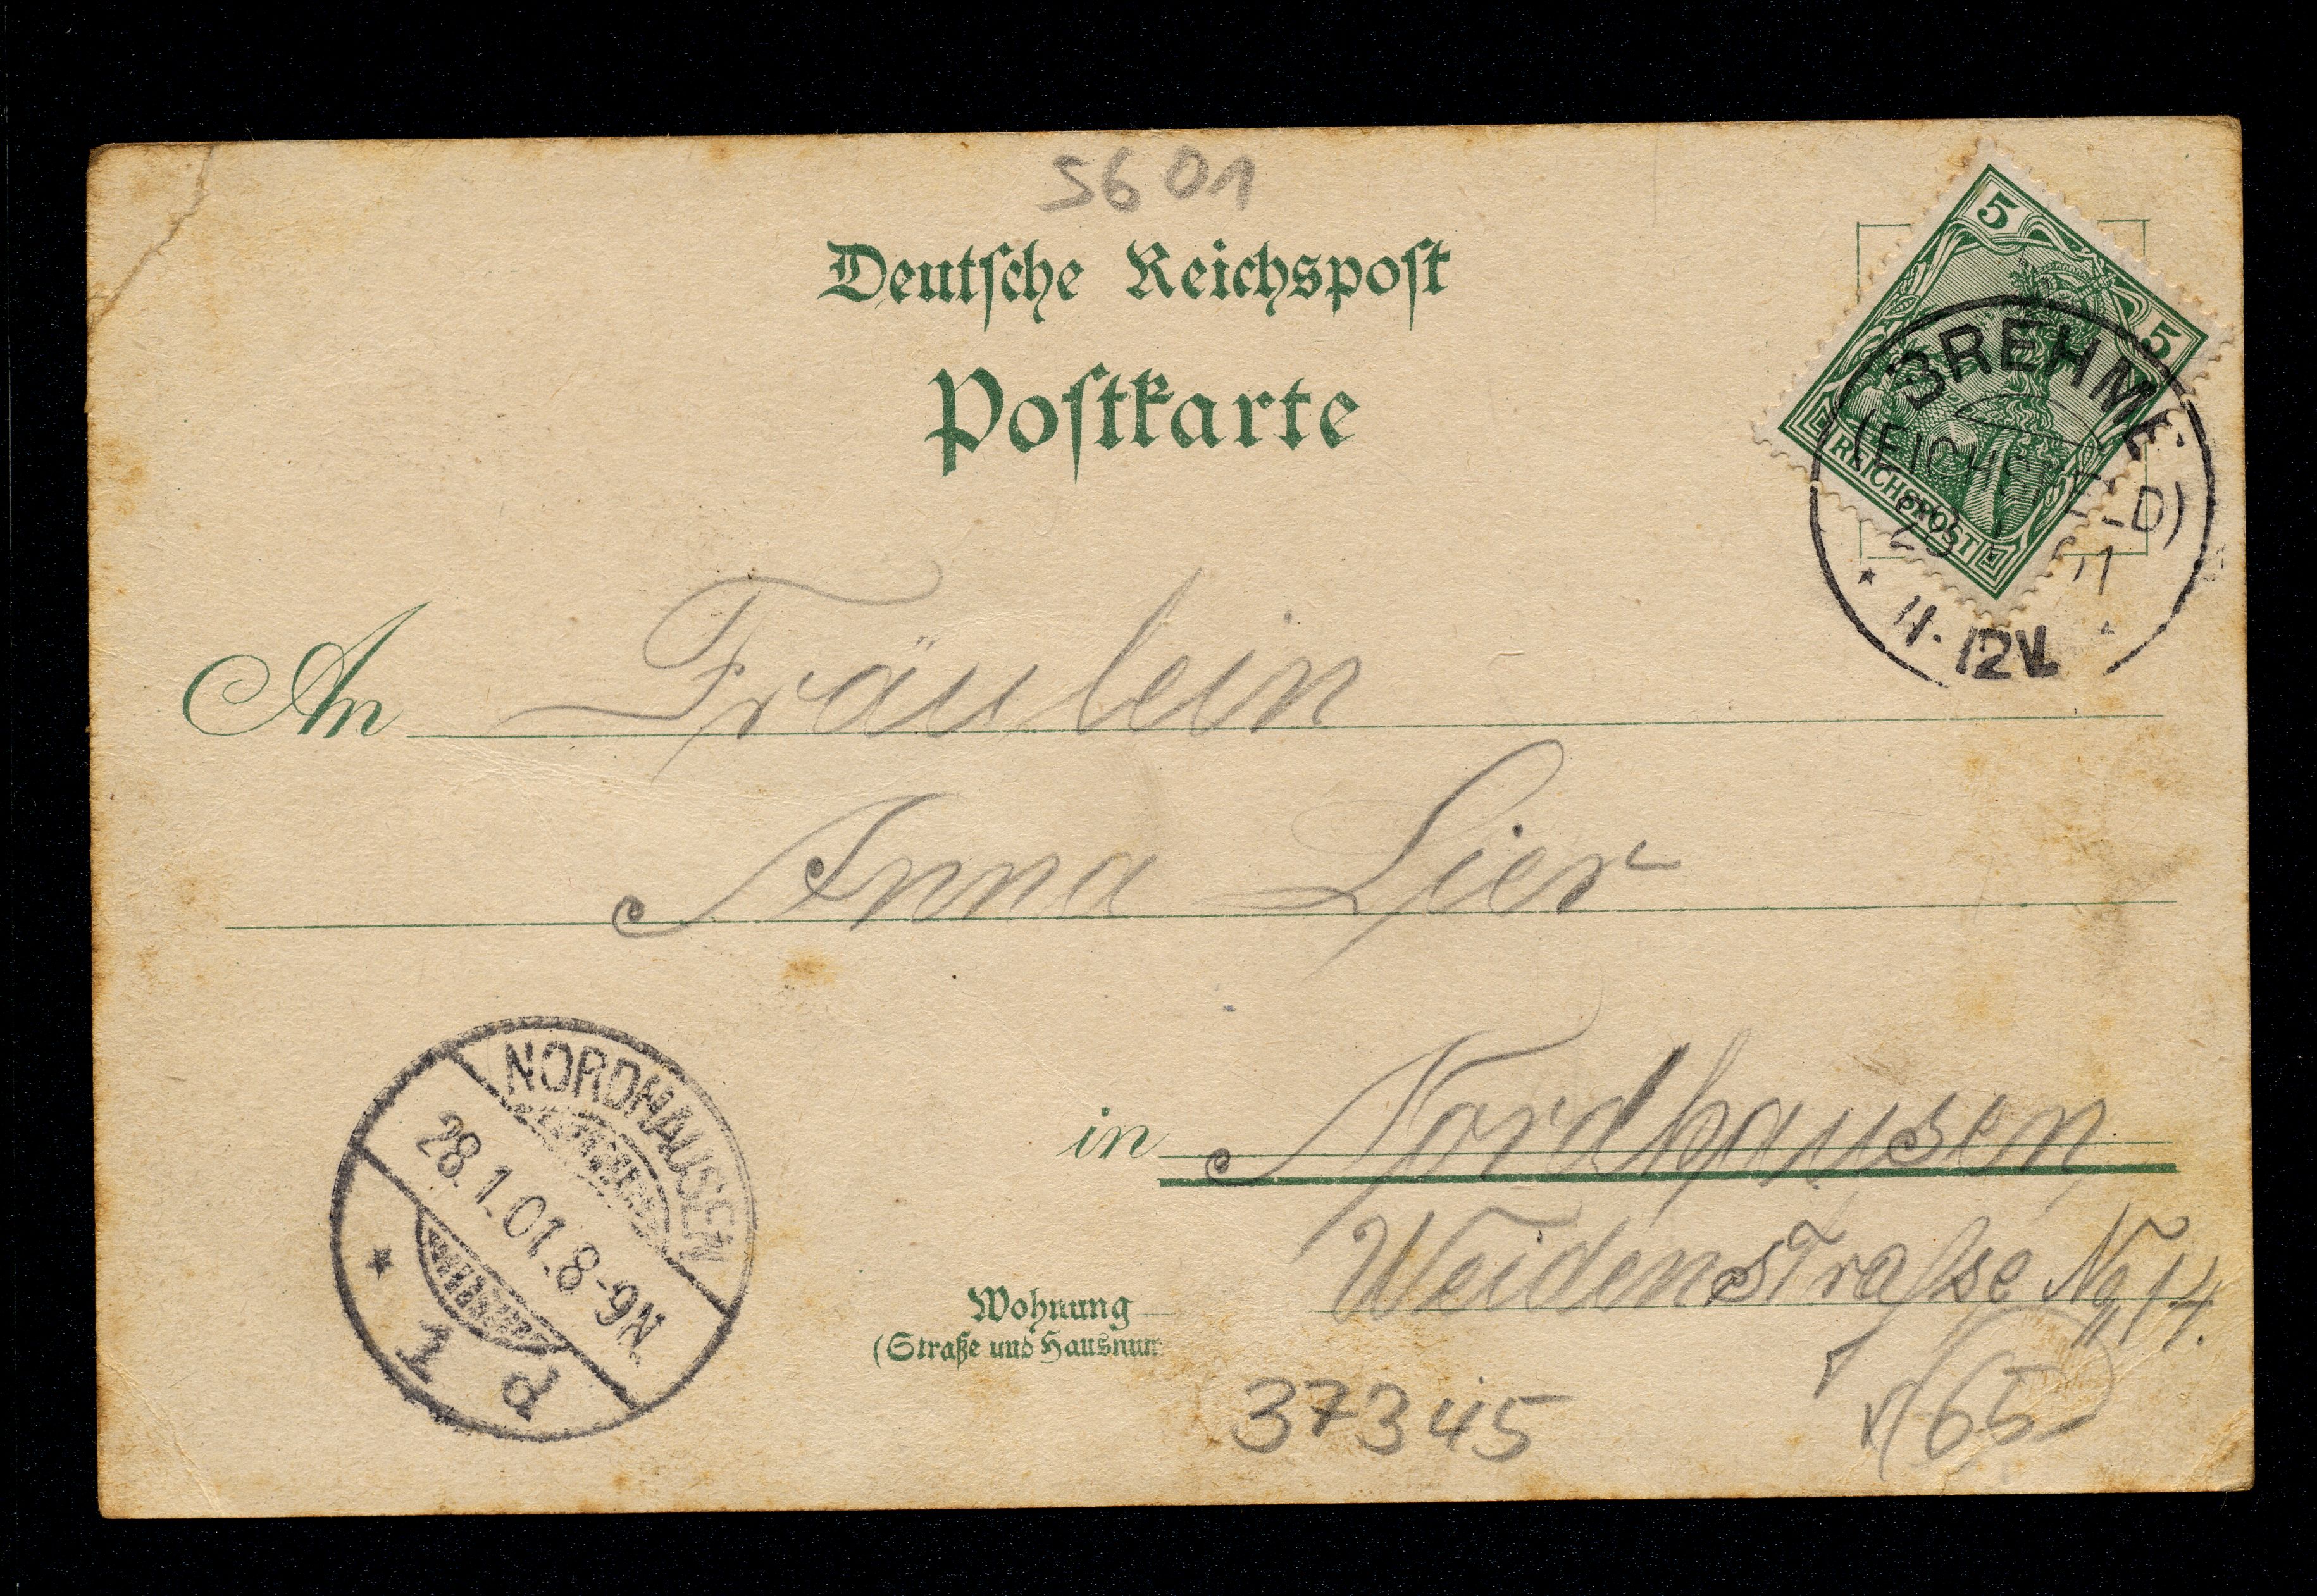 5601
Deutsche Reichspost
Postkarte
5
5
REICHSPOST
BREHME
(EICHSFELD)
11-12V.
An Fräulein
Anna Lier
in Nordhausen
Weidenstraße No 14.
Wohnung
(Straße und Hausnum
NORDHAUSEN
28.1.01.8-9N.
* 1 d
37345
65